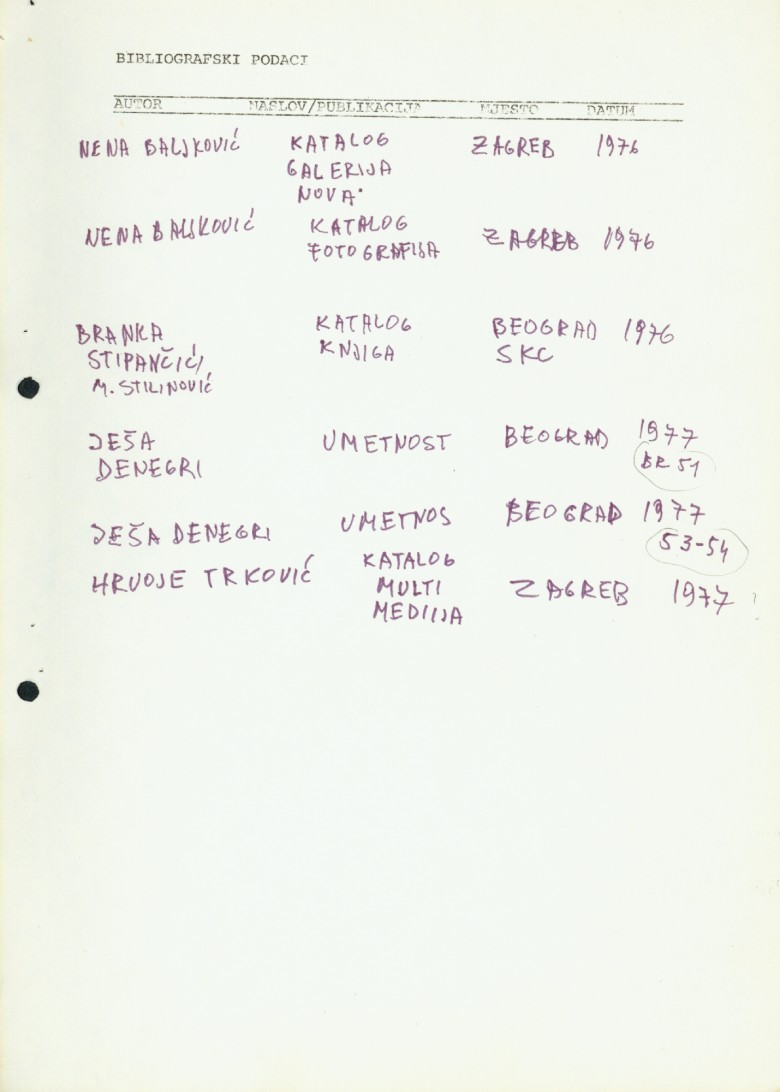 BIBLIOGRAFSKI PODACI
AUTOR NASLOV/PUBLIKACIJA MJESTO DATUM
NENA BALJKOVIĆ KATALOG ZAGREB 1976
GALERIJA
NOVA
NENA BALJKOVIĆ KATALOG ZAGREB 1976
FOTOGRAFIJA
BRANKA KATALOG BEOGRAD 1976
STIPANČIĆ, KNJIGA SKC
M. STILINOVIĆ
JEŠA UMETNOST BEOGRAD 1977
DENEGRI BR 51
JEŠA DENEGRI UMETNOS BEOGRAD 1977
53-54
HRVOJE TRKOVIĆ KATALOG ZAGREB 1977
MULTI
MEDIJA